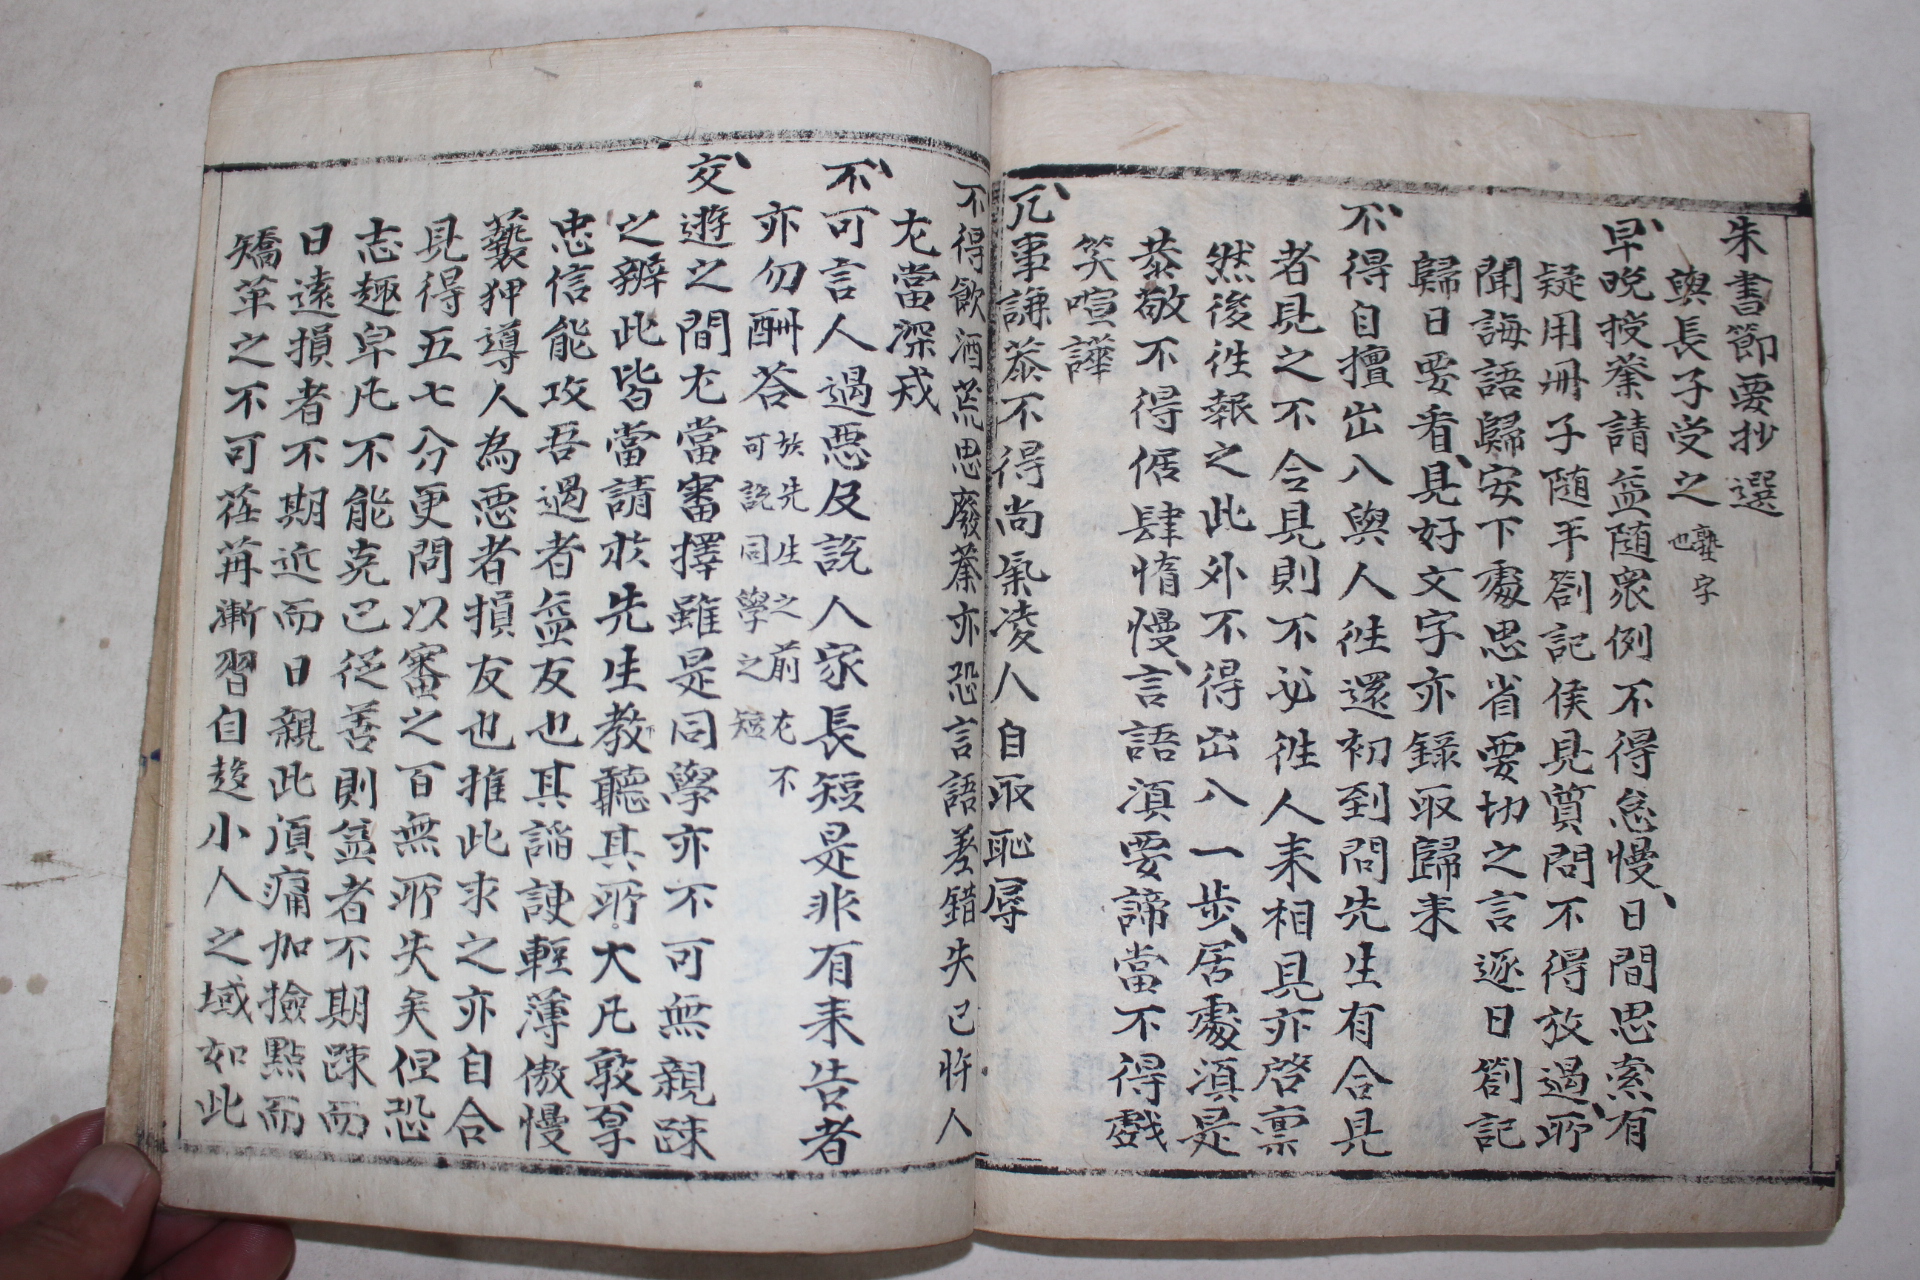 朱書節要抄選
與長子受之 塾字也
早晩授業請益隨衆例不得怠慢日間思索有
疑用冊子隨手劄記侯見質問不得放過所
聞誨語歸安下處思省要切之言逐日劄記
歸日要看見好文字亦錄取歸来
不得自擅出入與人徃還初到問先生有合見
者見之不合見則不必徃人来相見亦啓禀
然後徃報之此外不得出入一步居處湏是
恭敬不得倨肆惰慢言語湏要諦當不得戱
笑喧譁
凡事謙恭不得尚氣凌人自取恥辱
不得飮酒荒思廢業亦恐言語差錯失已忤人
尤當深戒
不可言人過惡及說人家長短是非有来告者
亦勿酬荅 扵先生之前尤不可說同學之短
交遊之間尤當審擇雖是同學亦不可無親踈
之辨此皆當請扵先生教聽其所大凡敦厚
忠信能攻吾過者益友也其謟諛輕薄傲慢
褻狎導人為惡者損友也推此求之亦自合
見得五七分更問以審之百無所失矣但恐
志趣卑凡不能克已從善則益者不期踈而
日遠損者不期近而日親此湏痛加撿點而
矯革之不可荏苒漸習自趍小人之域如此